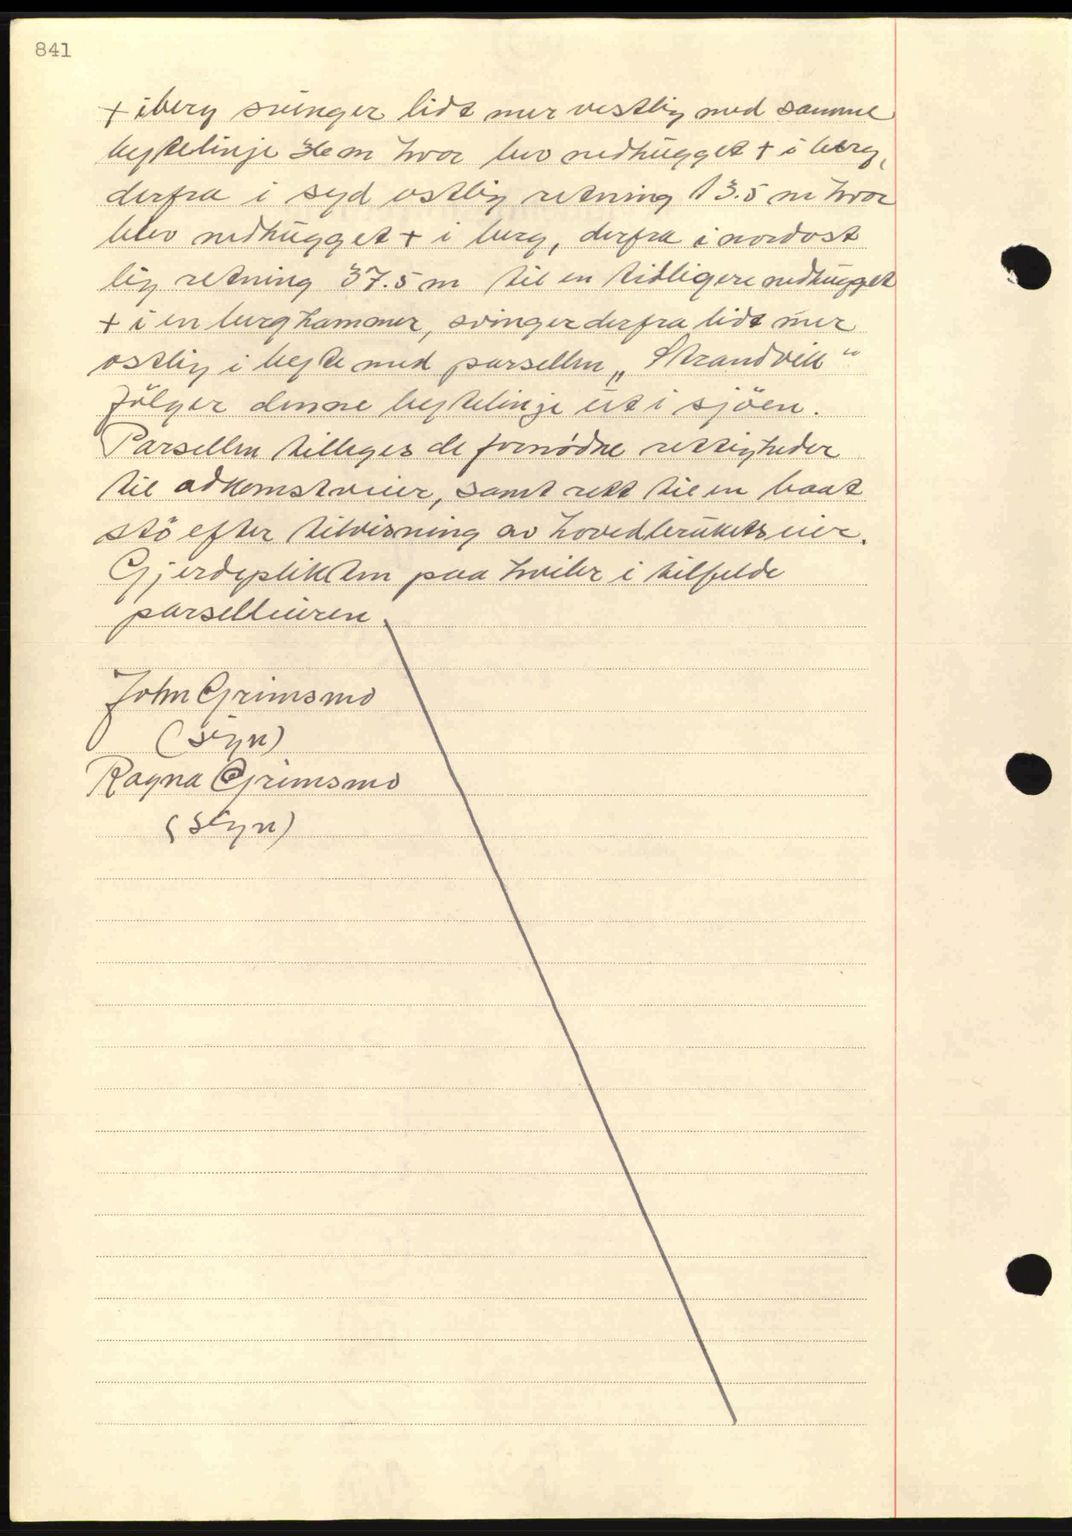 841
+ i berg svinger lidt mer vestlig med samme
bytelinje 36 m hvor blev nedhugget + i berg,
derfra i syd ostlig retning 13.5 m hvor
blev nedhugget + i berg, derfra i nordost
lig retning 37.5 m til en tidligere nedhugget
+ i en berghammer, svinger derfra lidt mer
ostlig i byte med parsellen „Strandvik“
følger denne bytelinje ut i sjöen.
Parsellen tilleges de fornødne rettigheder
til adkomstveier, samt rett til en baat
stö efter tilvisning av hovedbrukets eier.
Gjerdeplikten paa hviler i tilfelde
parselleieren
John Grimsmo
(sign)
Ragna Grimsmo
(sign)